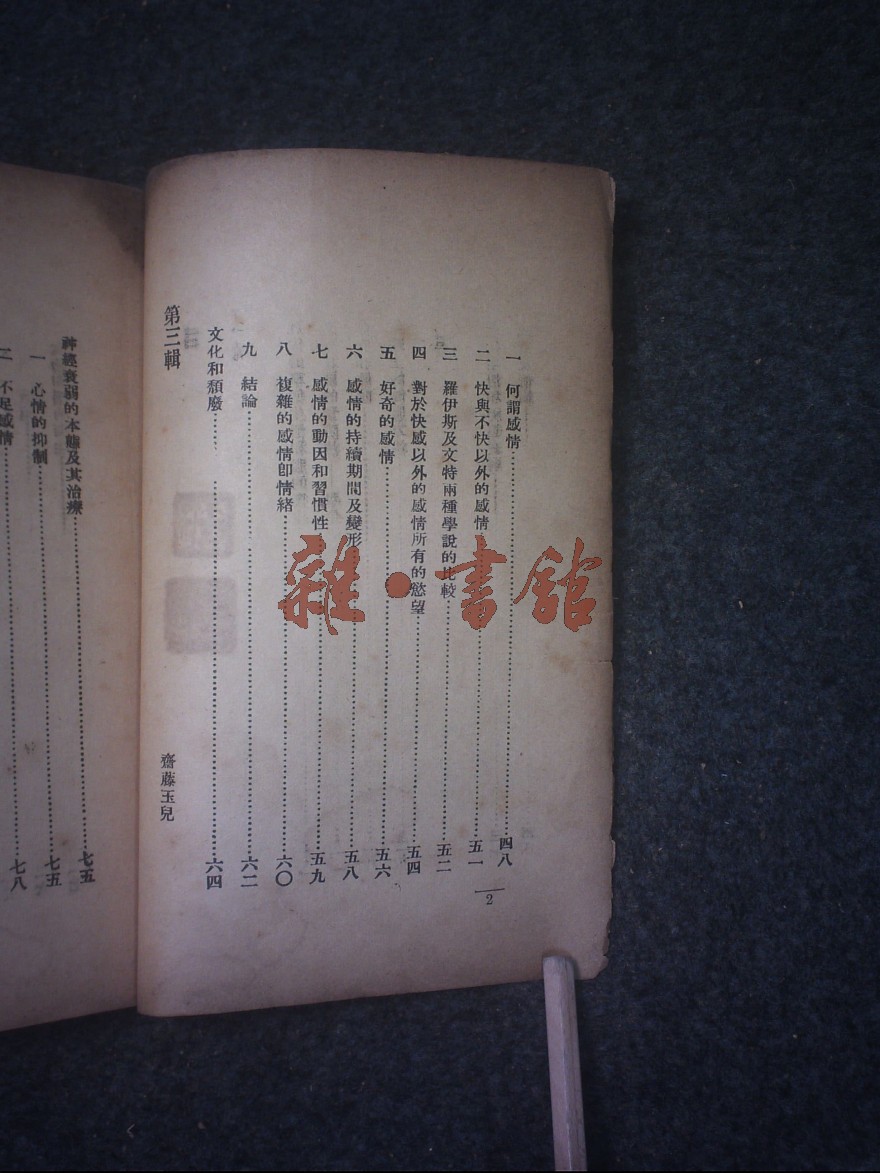 一　何謂感情……四八
二　快與不快以外的感情……五一
三　羅伊斯及文特兩種學說的比較……五二
四　對於快感以外的感情所有的慾望……五四
五　好奇的感情……五六
六　感情的持續期間及變形……五八
七　感情的動因和習慣性……五九
八　複雜的感情卽情緒……六〇
九　結論……六二
文化和頹廢……六四
第三輯
齋藤玉兒
2
神經衰弱的本態及其治療……七五
一　心情的抑制……七五
二　不足感情……七八
雜·書館